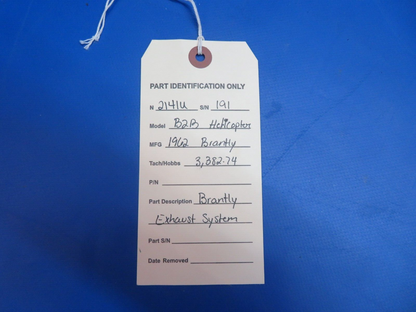 PART IDENTIFICATION ONLY
N 2141U S/N 191
Model B2B Helicopter
MFG 1962 Brantly
Tach/Hobbs 3,382.74
P/N
Part Description Brantly
Exhaust System
Part S/N
Date Removed